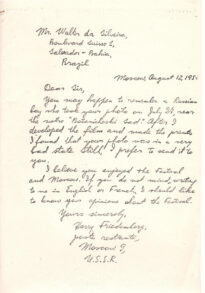 Mr. Walter da Silveira,
Boulevard Suisso 2,
Salvador - Bahia,
Brazil
Moscow, August 12, 195
Dear Sir,
You may happen to remember a Russian
boy who took your photo on July 29, near
the metro "Botanicheski Sad". After I
developed the film and made the prints
I found that your photo was in a very
bad state. Still I prefer to send it to
you.
I believe you enjoyed the Festival
and Moscow. If you do not mind, writing
to me in English or French, I should like
to know your opinions about the Festival.
Yours sincerely,
Harry
poste restante,
Moscow
U.S.S.R.